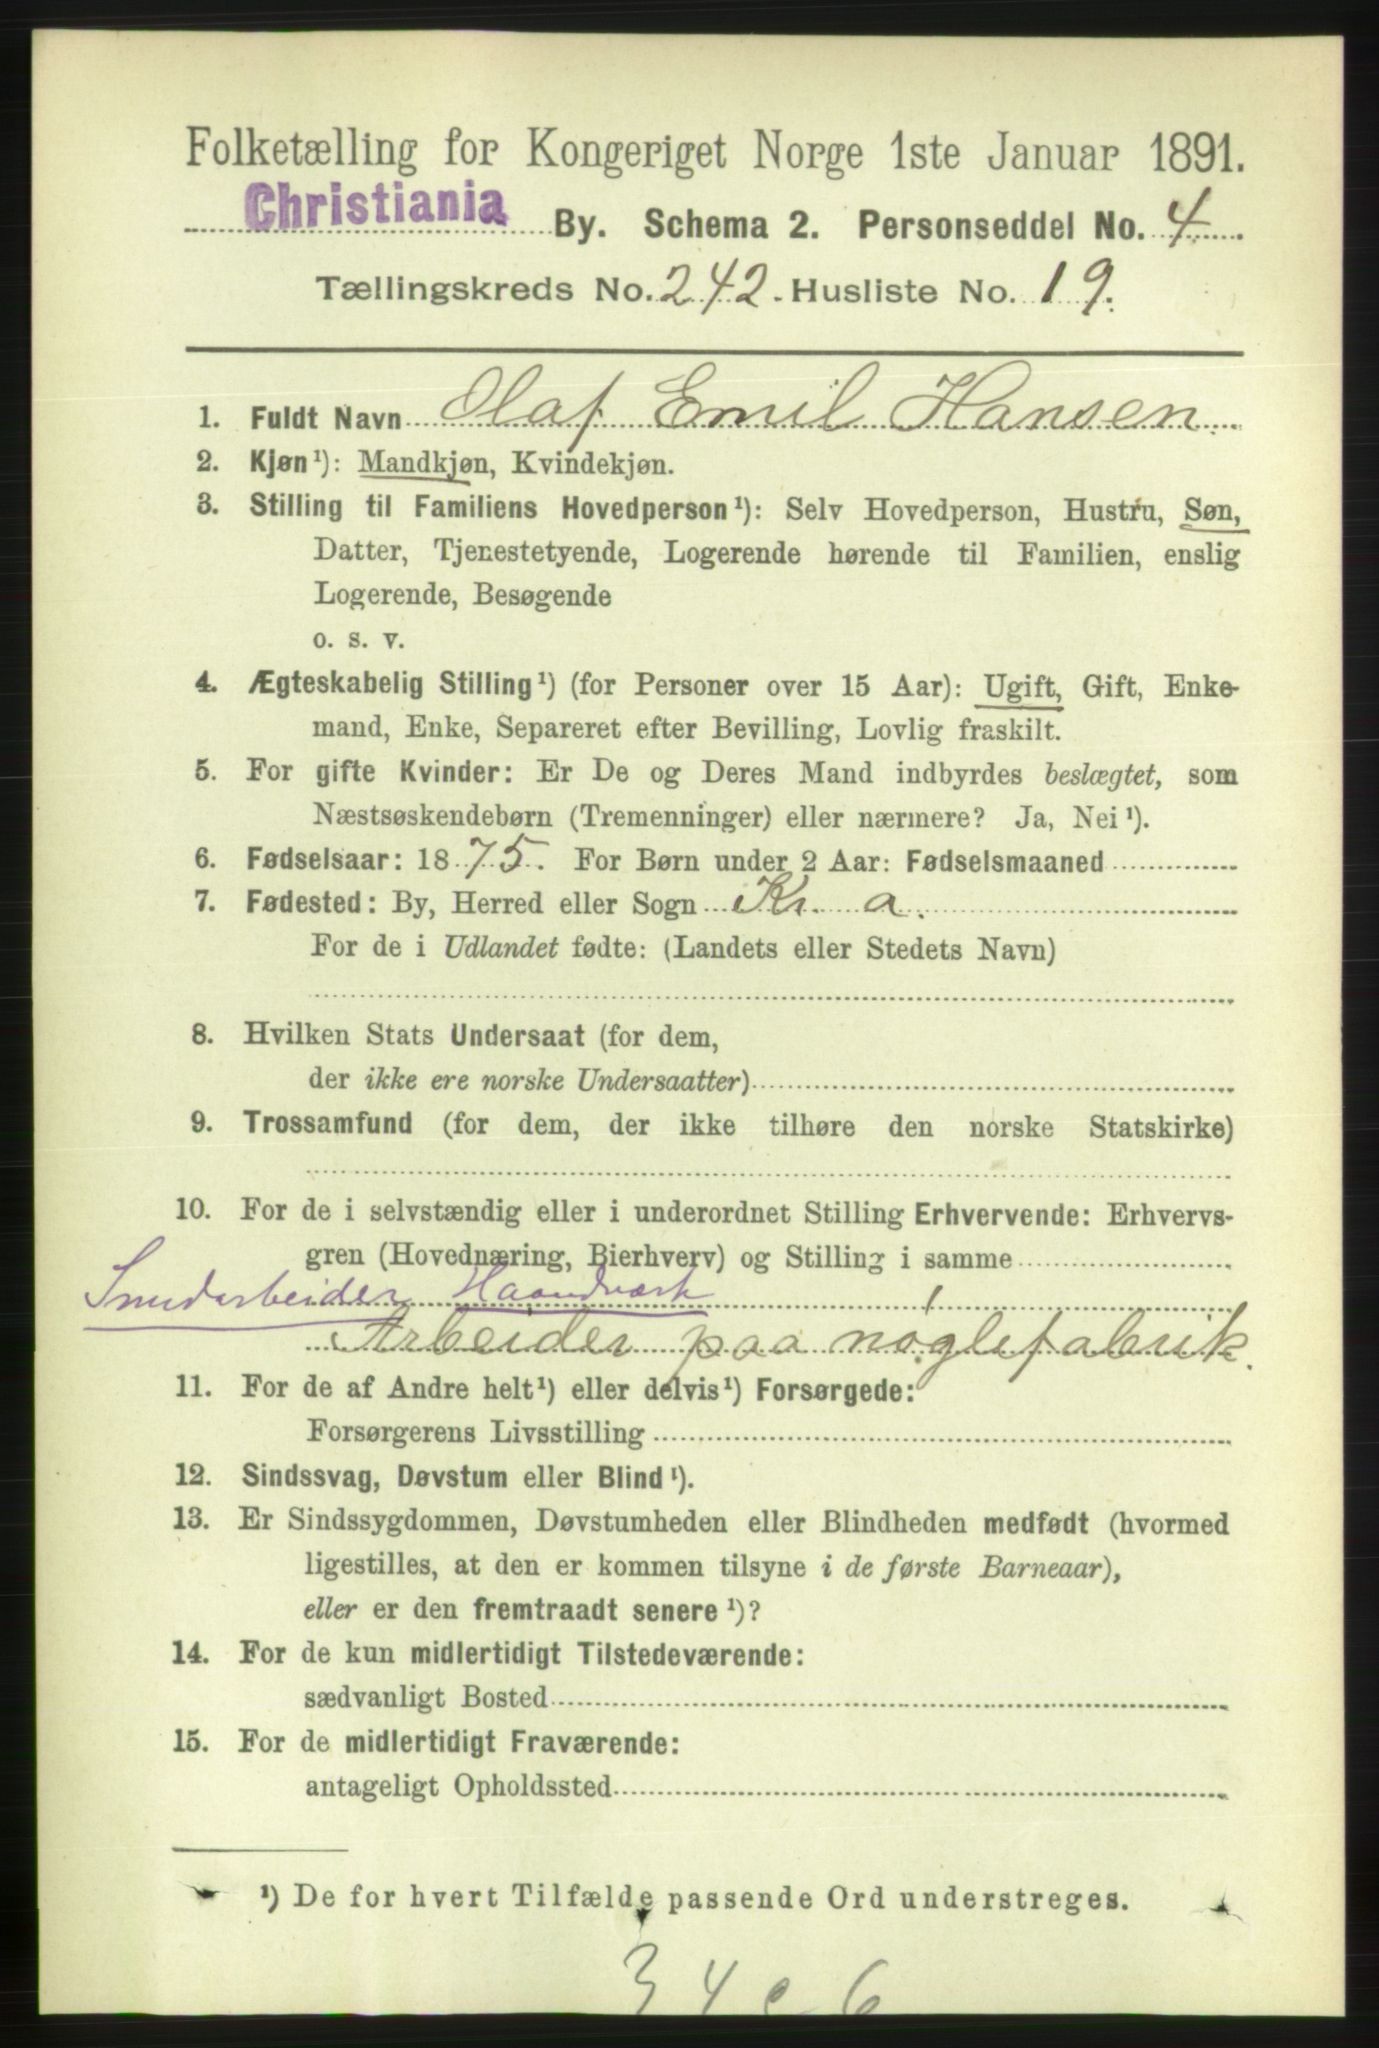 Folketælling for Kongeriget Norge 1ste Januar 1891.
Christiania By. Schema 2. Personseddel No. 4.
Tællingskreds No. 242. Husliste No. 19.
1. Fuldt Navn Olaf Emil Hansen.
2. Kjøn¹): Mandkjøn, Kvindekjøn.
3. Stilling til Familiens Hovedperson¹): Selv Hovedperson, Hustru, Søn,
Datter, Tjenestetyende, Logerende hørende til Familien, enslig
Logerende, Besøgende
o. s. v.
4. Ægteskabelig Stilling¹) (for Personer over 15 Aar): Ugift, Gift, Enke-
mand, Enke, Separeret efter Bevilling, Lovlig fraskilt.
5. For gifte Kvinder: Er De og Deres Mand indbyrdes beslægtet, som
Næstsøskendebørn (Tremenninger) eller nærmere? Ja, Nei¹).
6. Fødselsaar: 1875. For Børn under 2 Aar: Fødselsmaaned
7. Fødested: By, Herred eller Sogn Kr. a.
For de i Udlandet fødte: (Landets eller Stedets Navn)
8. Hvilken Stats Undersaat (for dem,
der ikke ere norske Undersaatter)
9. Trossamfund (for dem, der ikke tilhøre den norske Statskirke)
10. For de i selvstændig eller i underordnet Stilling Erhvervende: Erhvervs-
gren (Hovednæring, Bierhverv) og Stilling i samme
Smedarbeider Haandværk
Arbeider paa nøglefabrik.
11. For de af Andre helt¹) eller delvis¹) Forsørgede:
Forsørgerens Livsstilling
12. Sindssvag, Døvstum eller Blind¹).
13. Er Sindssygdommen, Døvstumheden eller Blindheden medfødt (hvormed
ligestilles, at den er kommen tilsyne i de første Barneaar),
eller er den fremtraadt senere¹)?
14. For de kun midlertidigt Tilstedeværende:
sædvanligt Bosted
15. For de midlertidigt Fraværende:
antageligt Opholdssted
¹) De for hvert Tilfælde passende Ord understreges.